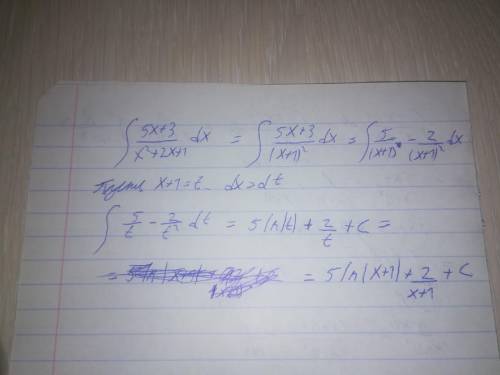 ∫ (5x+3)/(x²+2x+1) dx = ∫ (5x+3)/(x+1)² dx = ∫ 5/(x+1) - 2/(x+1)² dx
x+1=t dx=dt
∫ 5/t - 2/t² dt = 5 ln|t| + 2/t + C =
= 5 ln|x+1| + 2/(x+1) + C